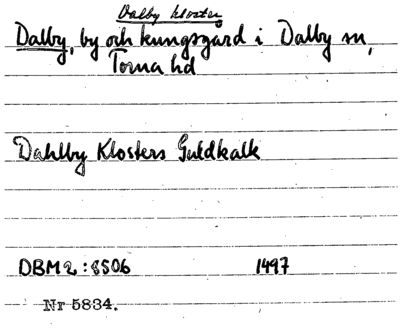 Dalby kloster
Dalby, by och kungsgård i Dalby sn,
Torna hd
Dahlby Klosters Guldkalk
DBM 2:8506 1497
Nr 5834.